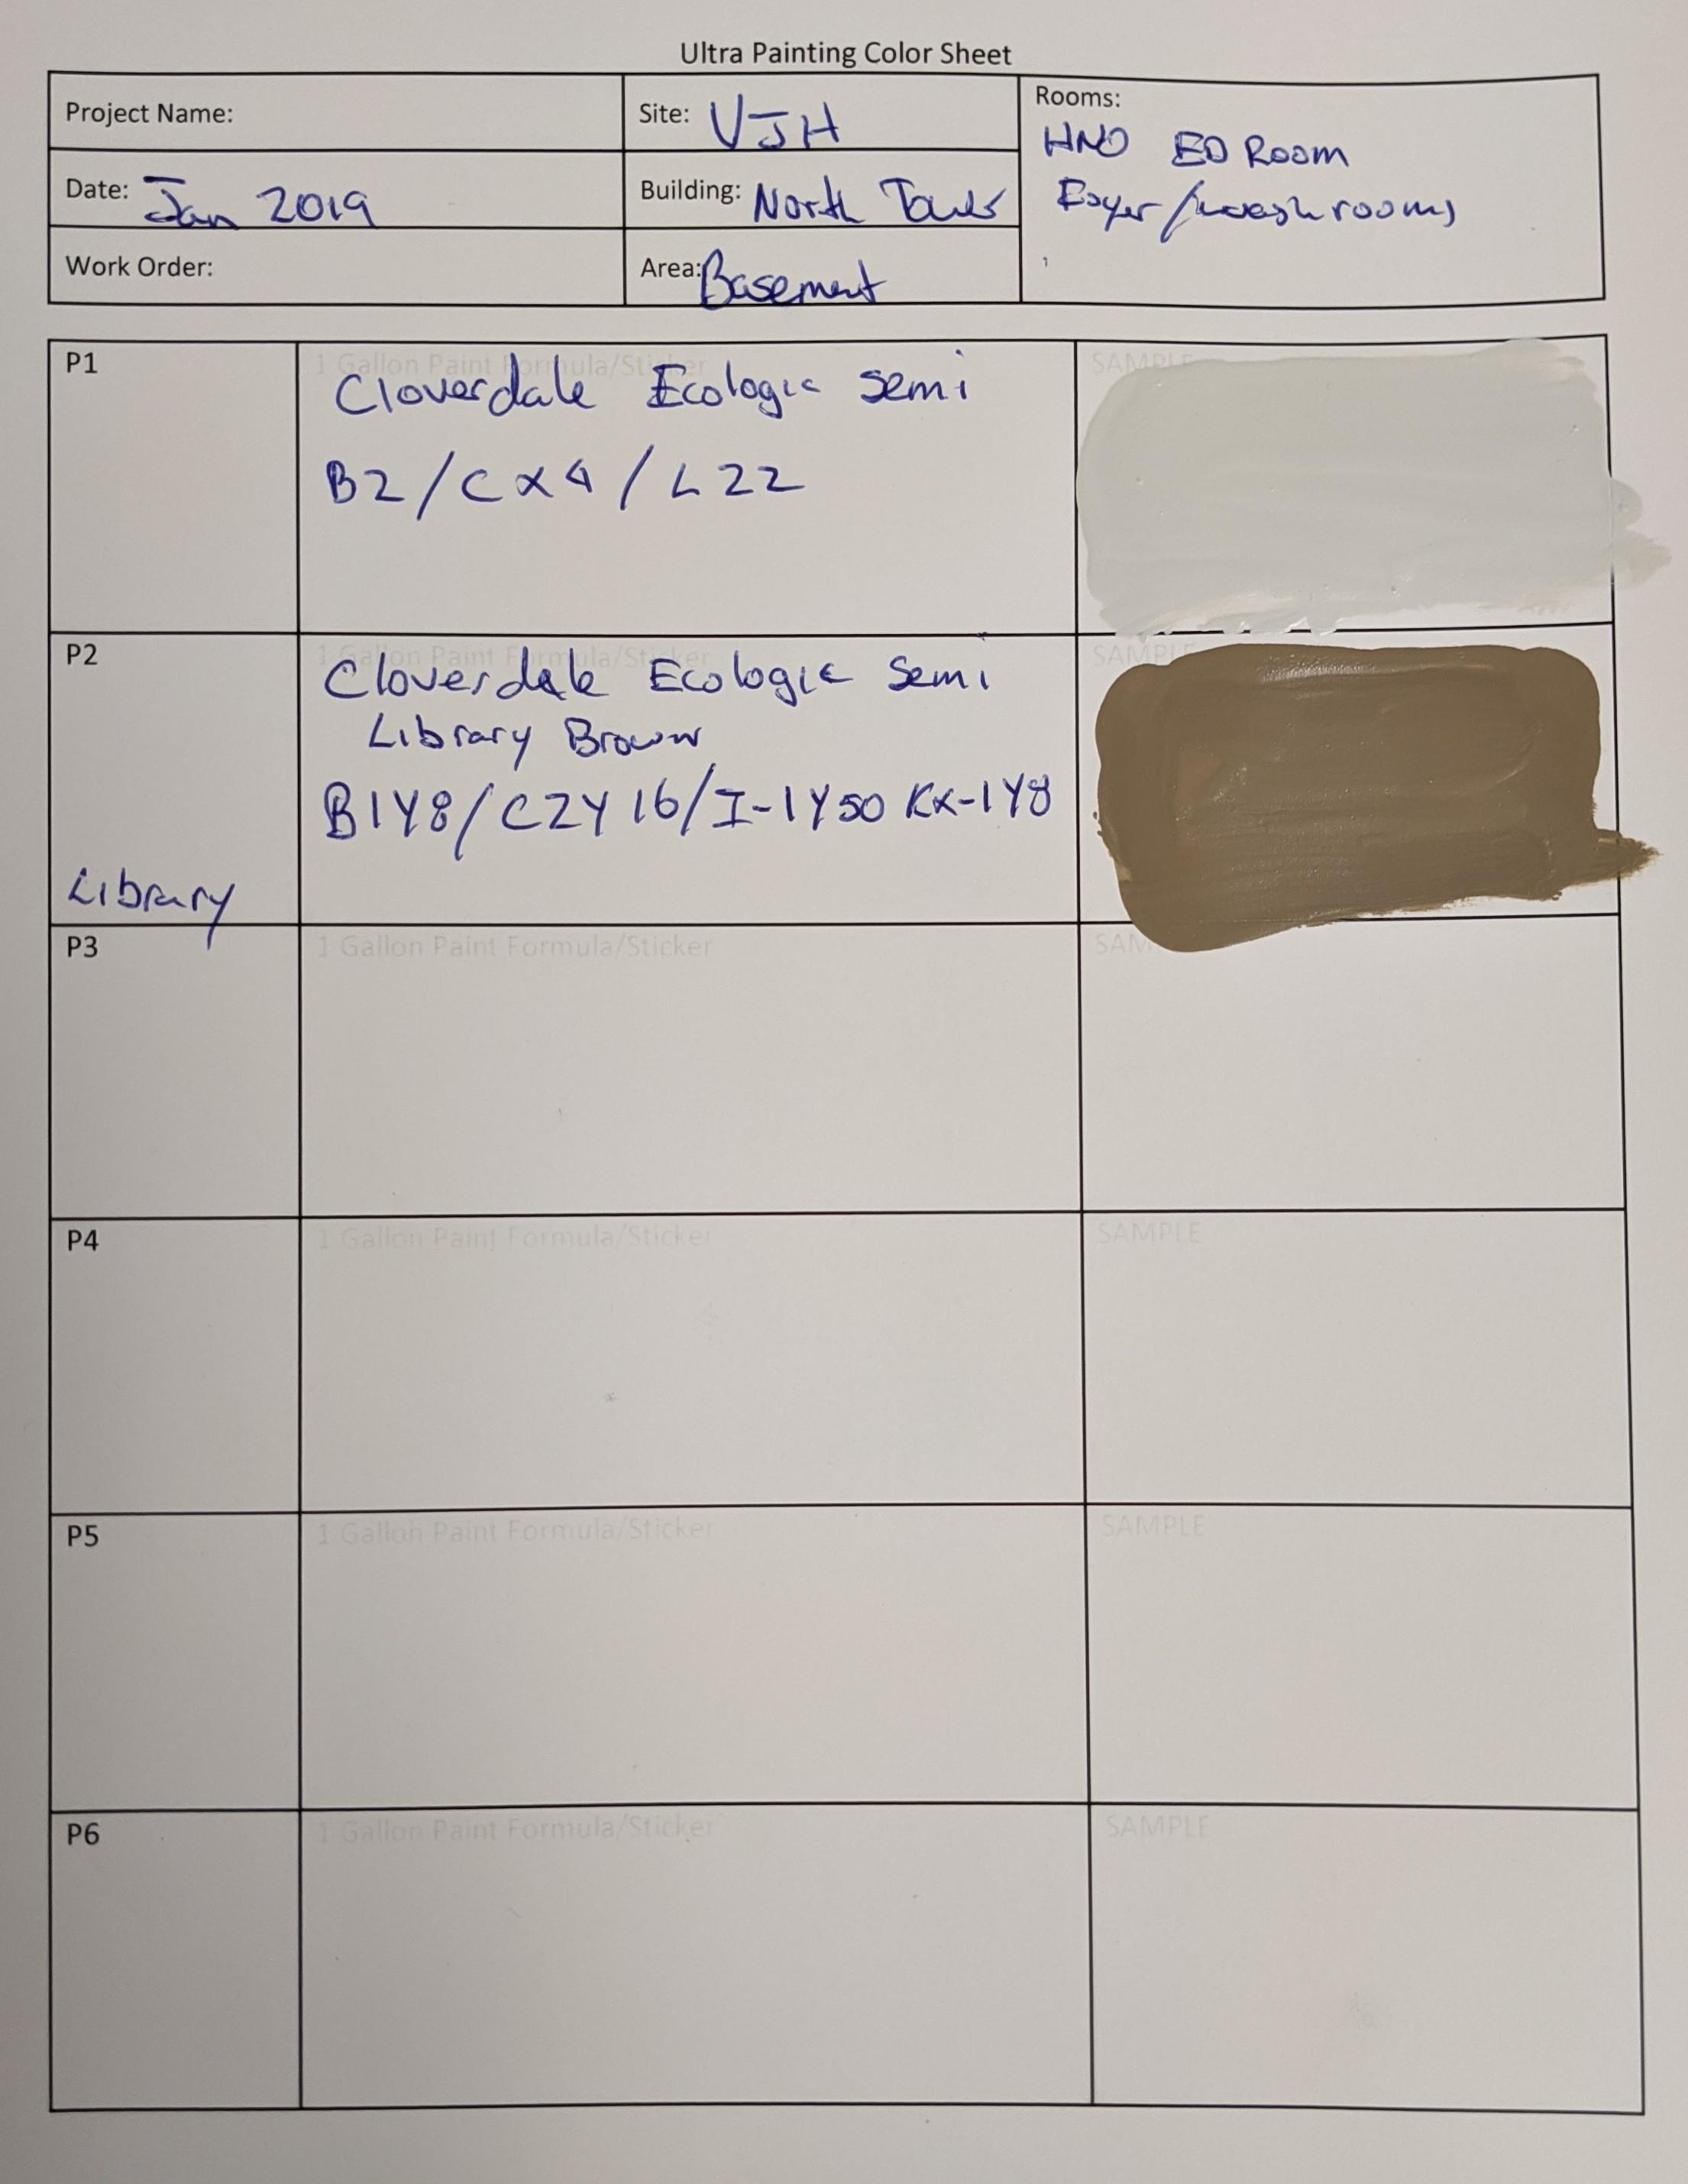 Ultra Painting Color Sheet
Project Name:
Site: VJH
Rooms:
HNO ED Room
Foyer/washrooms
Date: Jan 2019
Building: North Tower
Work Order:
Area: Basement
P1
1 Gallon Paint Formula/Sticker
SAMPLE
Cloverdale Ecologic Semi
B2/CX4/L22
P2
1 Gallon Paint Formula/Sticker
SAMPLE
Cloverdale Ecologic Semi
Library Brown
B1Y8/C2Y16/I-1Y50 KX-1Y8
Library
P3
1 Gallon Paint Formula/Sticker
SAM
P4
1 Gallon Paint Formula/Sticker
SAMPLE
P5
1 Gallon Paint Formula/Sticker
SAMPLE
P6
1 Gallon Paint Formula/Sticker
SAMPLE